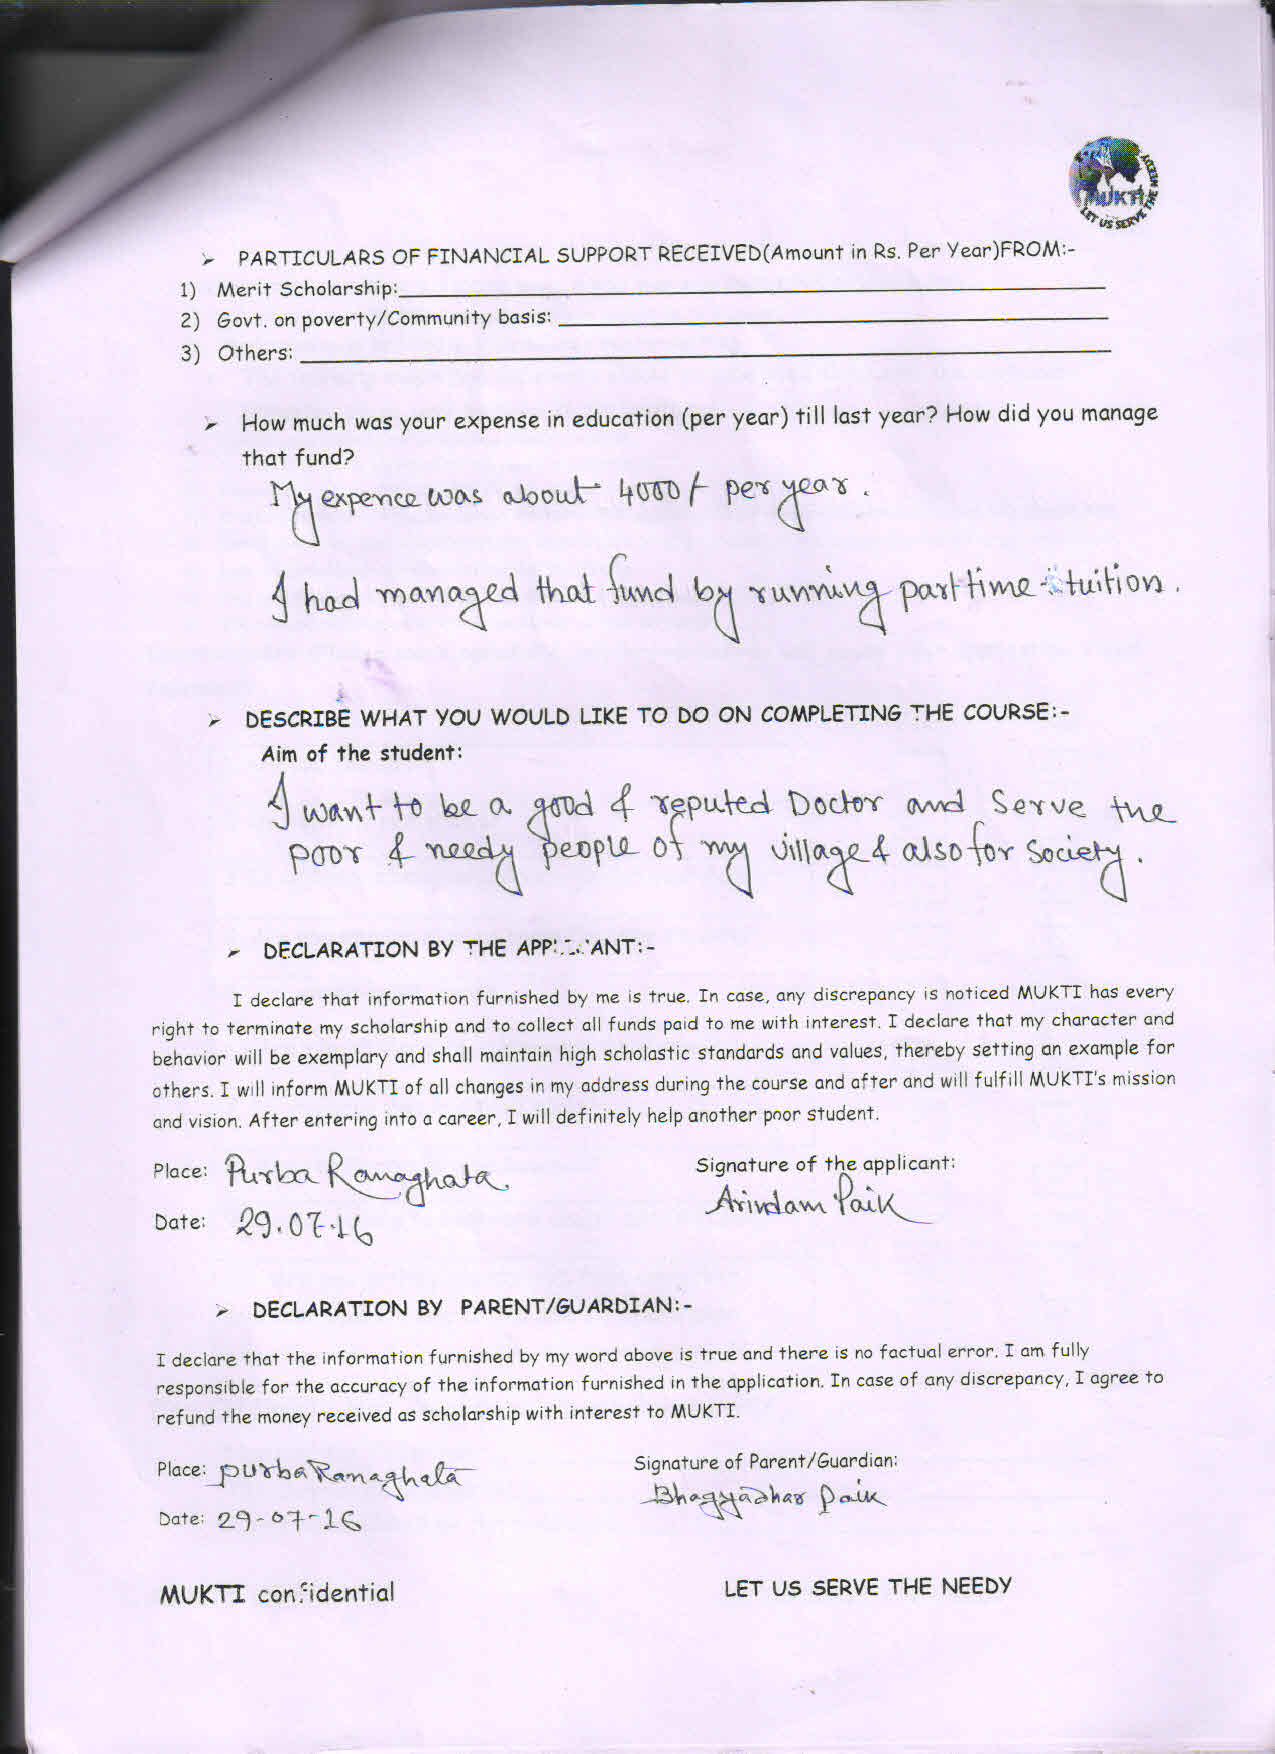 MUKTI
LET US SERVE THE NEEDY
➢ PARTICULARS OF FINANCIAL SUPPORT RECEIVED(Amount in Rs. Per Year)FROM:-
1) Merit Scholarship:
2) Govt. on poverty/Community basis:
3) Others:
➢ How much was your expense in education (per year) till last year? How did you manage
that fund?
My expence was about 4000/- per year.
I had managed that fund by running part time tuition.
➢ DESCRIBE WHAT YOU WOULD LIKE TO DO ON COMPLETING THE COURSE:-
Aim of the student:
I want to be a good & reputed Doctor and Serve the
poor & needy people of my village & also for Society.
➢ DECLARATION BY THE APPLICANT:-
I declare that information furnished by me is true. In case, any discrepancy is noticed MUKTI has every
right to terminate my scholarship and to collect all funds paid to me with interest. I declare that my character and
behavior will be exemplary and shall maintain high scholastic standards and values, thereby setting an example for
others. I will inform MUKTI of all changes in my address during the course and after and will fulfill MUKTI's mission
and vision. After entering into a career, I will definitely help another poor student.
Place: Purba Ranaghata. Signature of the applicant:
Arindam Paik
Date: 29.07.16
➢ DECLARATION BY PARENT/GUARDIAN:-
I declare that the information furnished by my word above is true and there is no factual error. I am fully
responsible for the accuracy of the information furnished in the application. In case of any discrepancy, I agree to
refund the money received as scholarship with interest to MUKTI.
Place: purba Ranaghata Signature of Parent/Guardian:
Bhagyadhar Paik
Date: 29-07-16
MUKTI confidential LET US SERVE THE NEEDY